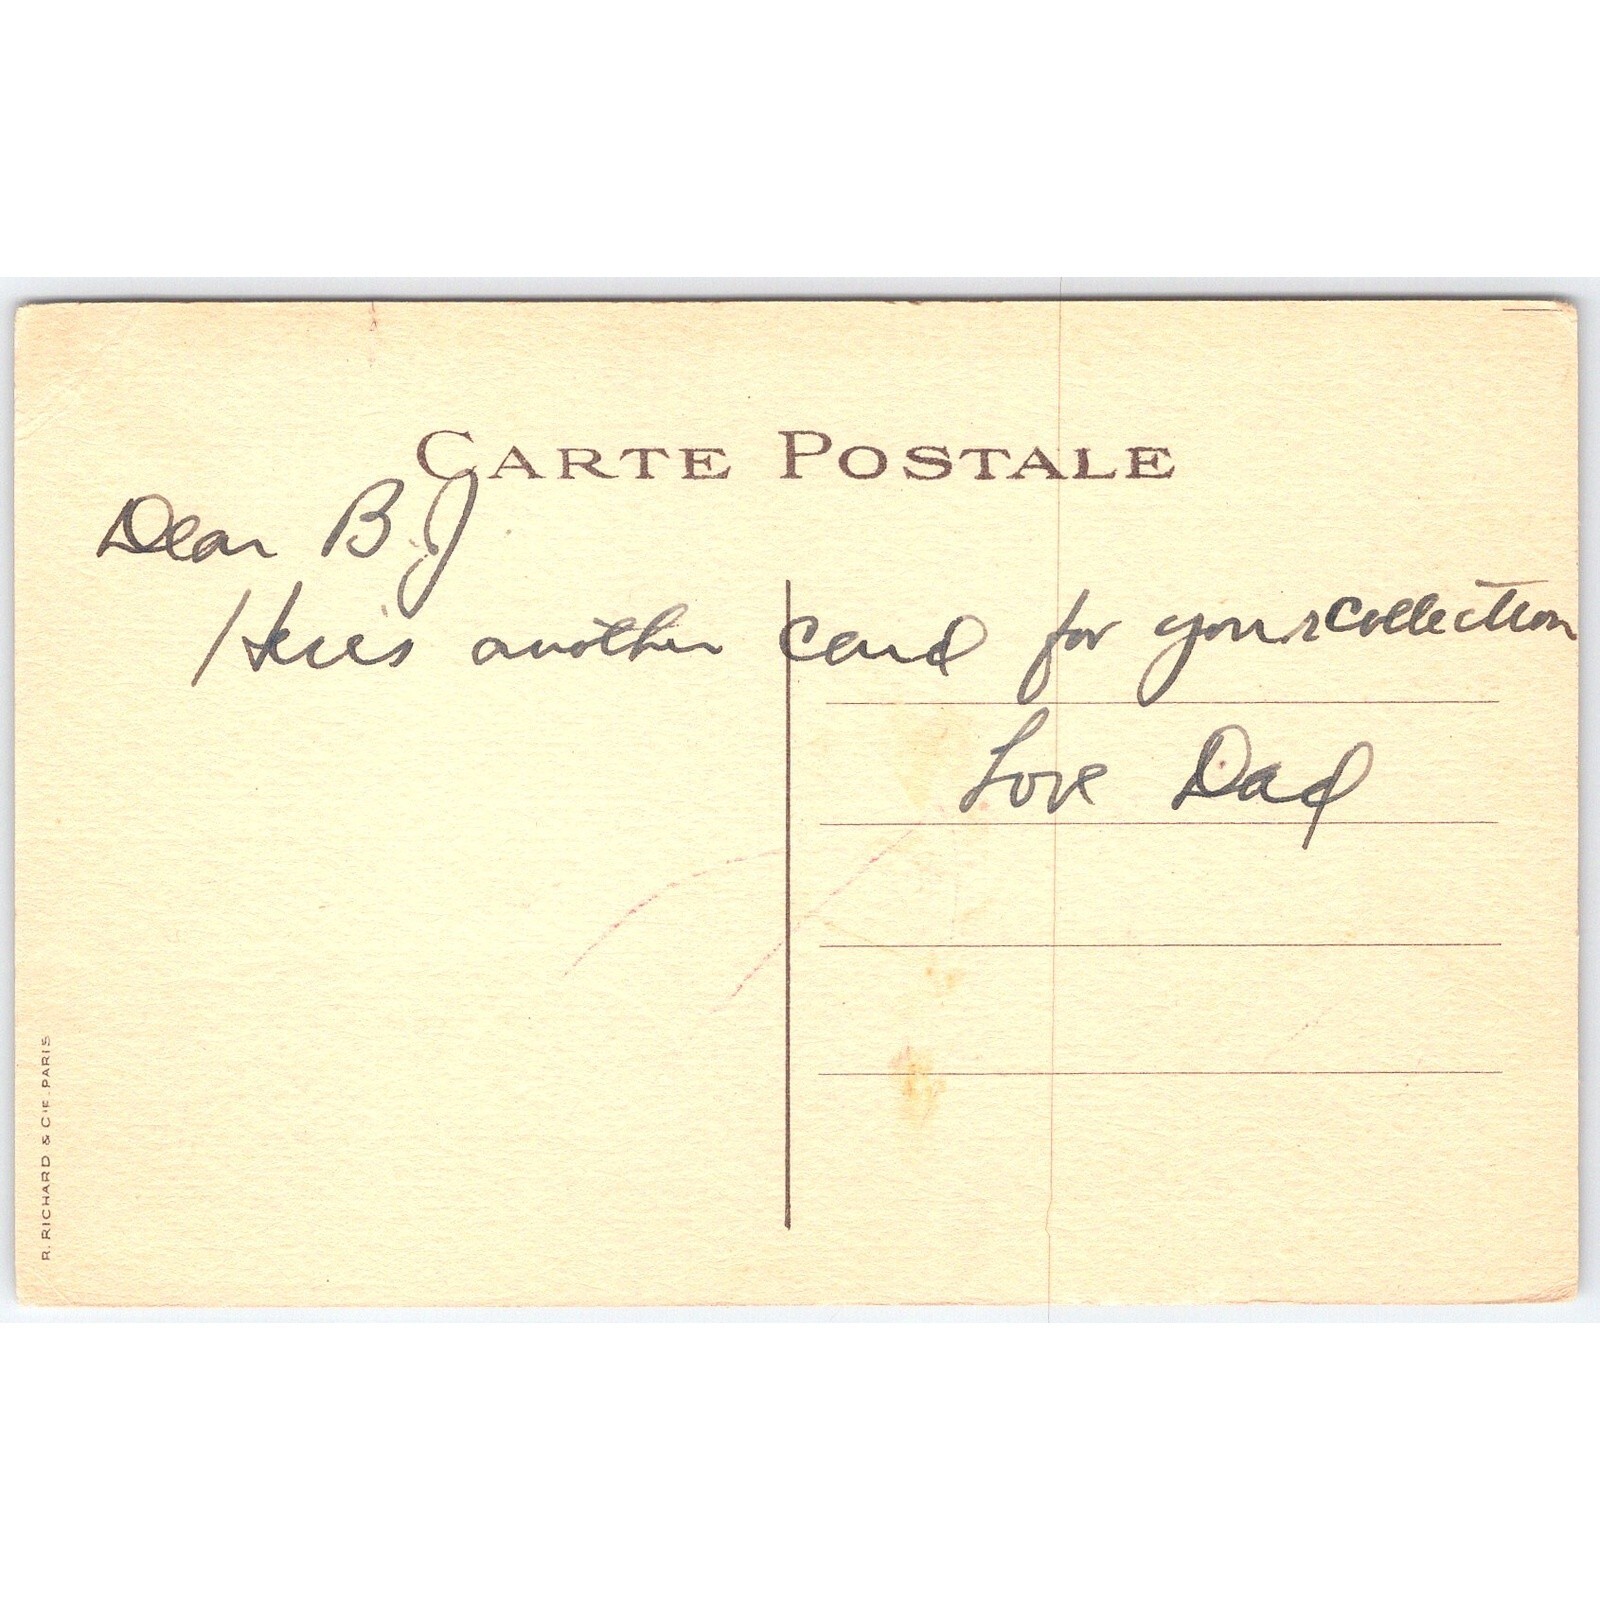 CARTE POSTALE
Dear B.J
Here's another card for your collection
Love Dad
R. RICHARD & CIE. PARIS